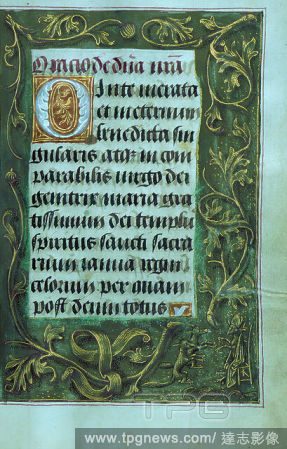 Oratio de dña nrã
O Intemerata
et in eternum
benedicta sin
gularis atqȝ in com
parabilis virgo dei
genitrix maria gra
tissimum dei templũ
spiritus sancti sacra
rium ianua regni
celorum per quam
post deum totus v
TPG
www.tpgnews.com/ 達志影像